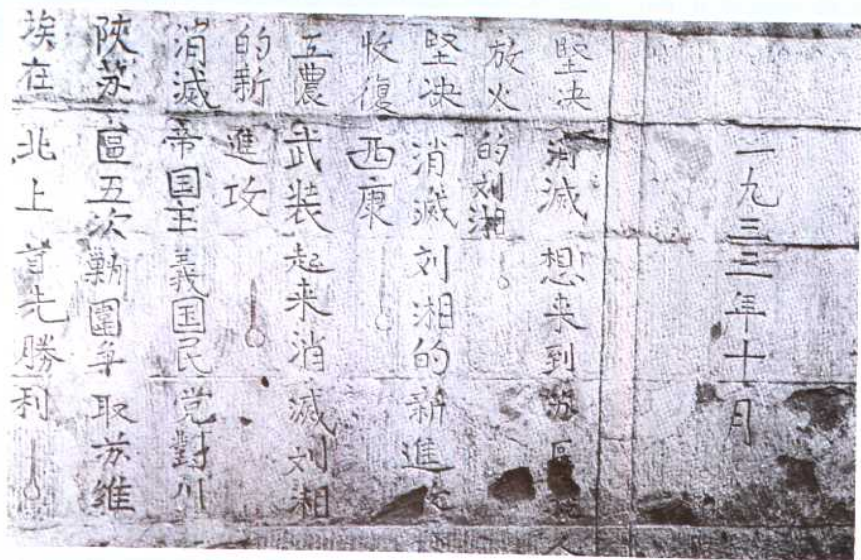 一九三三年十月
堅决消滅想来到苏區人
放火的刘湘！
堅决消滅刘湘的新進攻
收復西康！
工農武装起来消滅刘湘
的新進攻！
消滅帝国主義国民党對川
陕苏區五次勦圍争取苏維
埃在北上首先勝利！